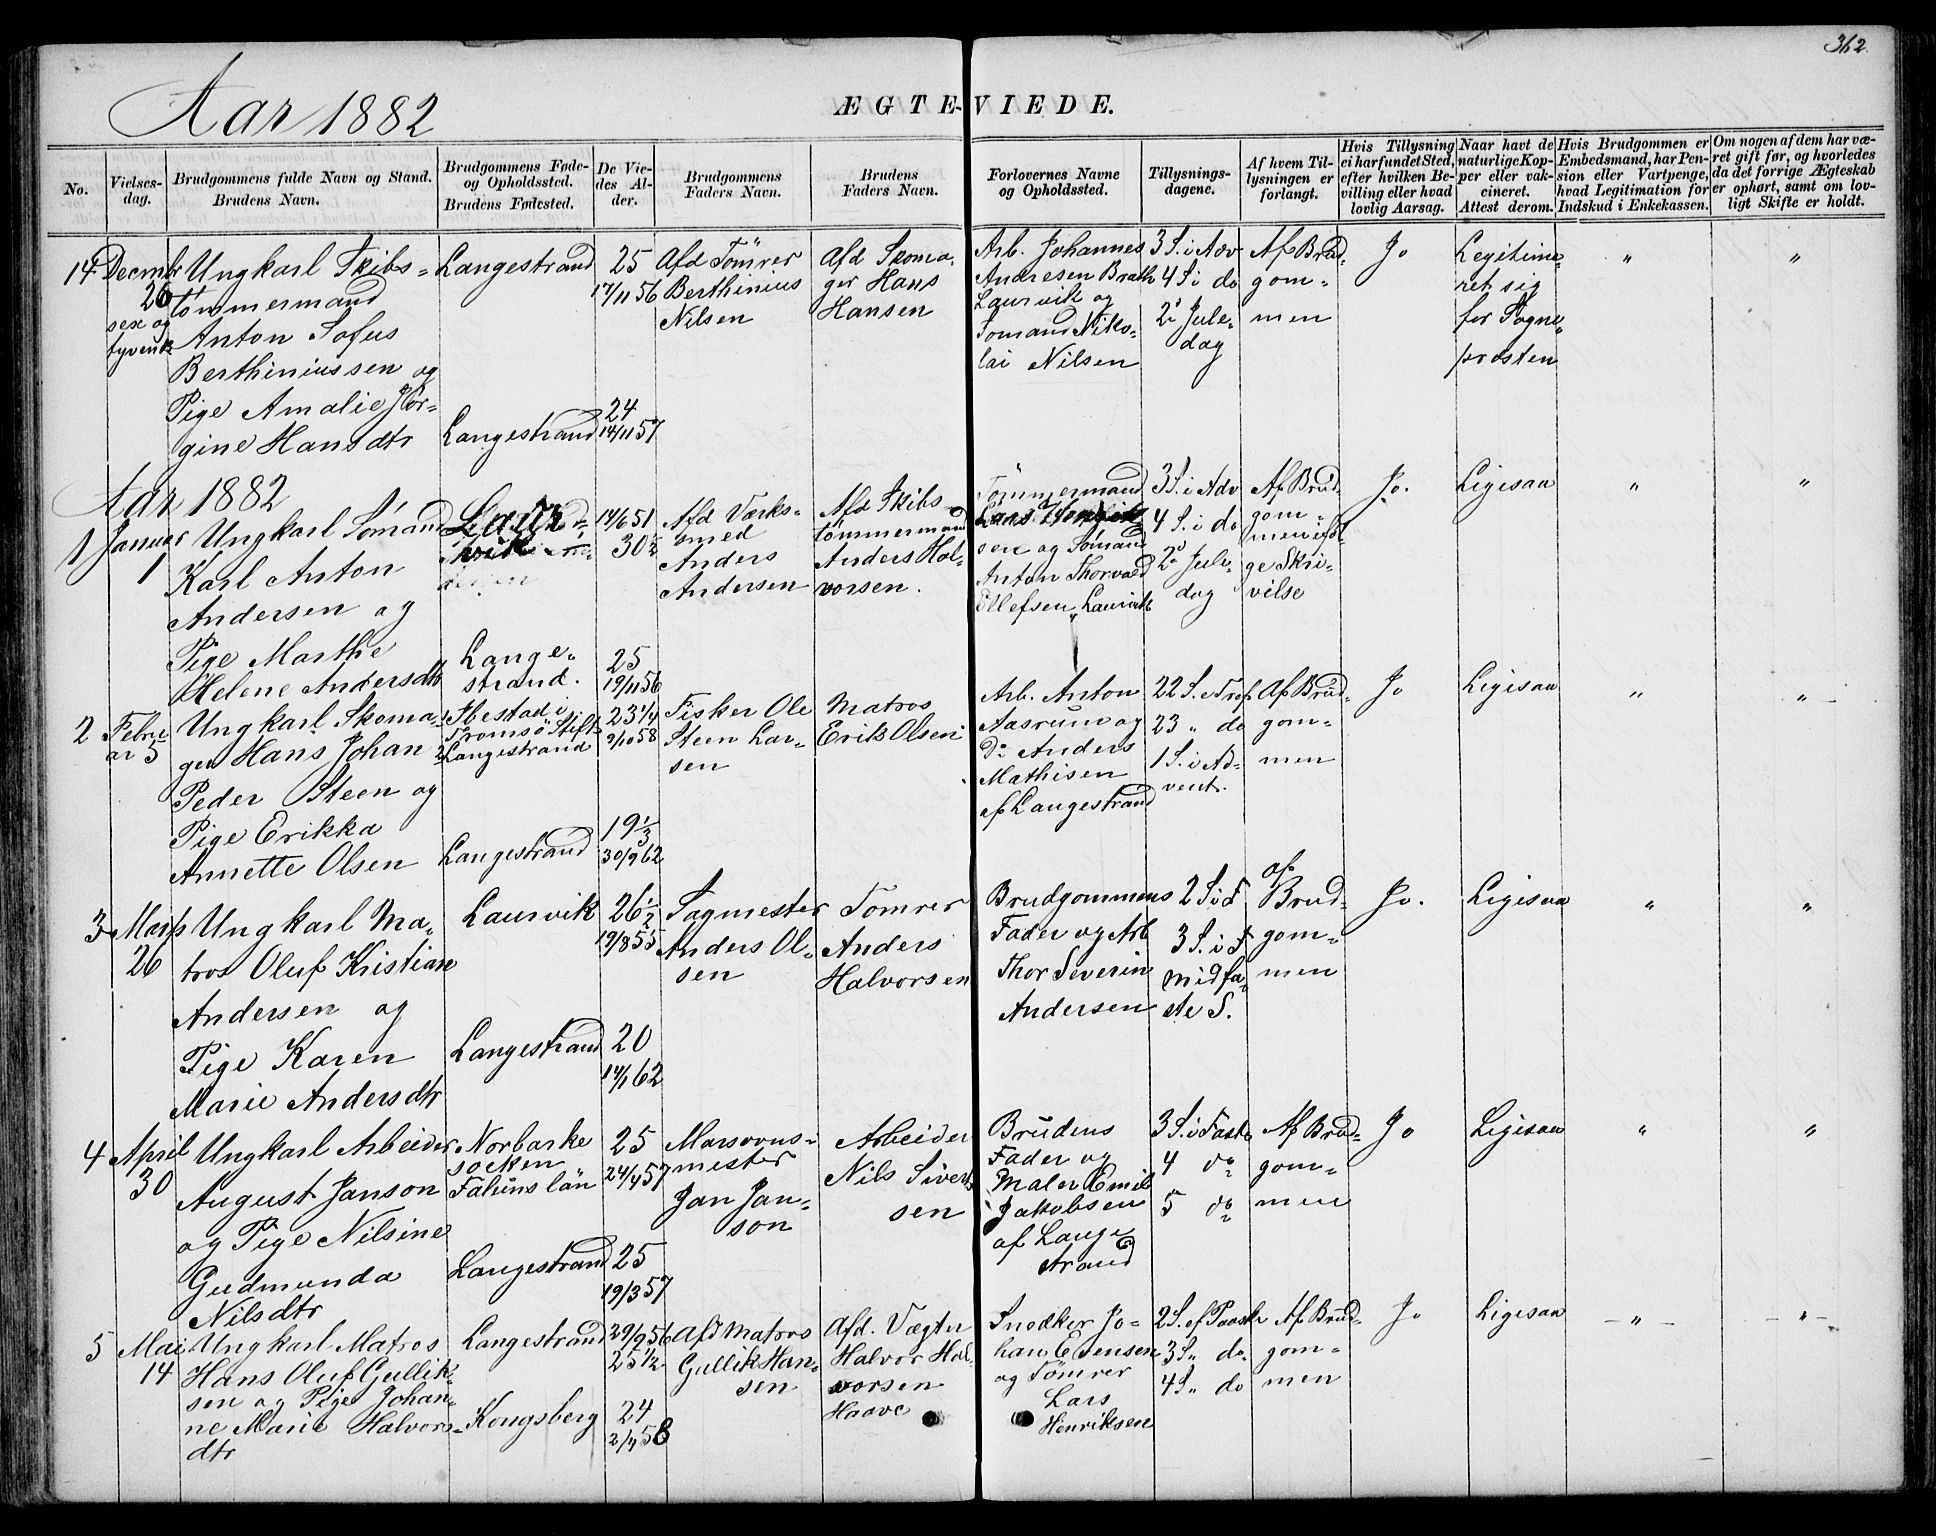 362
Aar 1882
ÆGTE-VIEDE.
No.
Vielses-
dag.
Brudgommens fulde Navn og Stand.
Brudens Navn.
Brudgommens Føde-
og Opholdssted.
Brudens Fødested.
De Vie-
des Al-
der.
Brudgommens
Faders Navn.
Brudens
Faders Navn.
Forlovernes Navne
og Opholdssted.
Tillysnings-
dagene.
Af hvem Til-
lysningen er
forlangt.
Hvis Tillysning
ei har fundet Sted,
efter hvilken Be-
villing eller hvad
lovlig Aarsag.
Naar havt de
naturlige Kop-
per eller vak-
cineret.
Attest derom.
Hvis Brudgommen er
Embedsmand, har Pen-
sion eller Vartpenge,
hvad Legitimation for
Indskud i Enkekassen.
Om nogen af dem har væ-
ret gift før, og hvorledes
da det forrige Ægteskab
er ophørt, samt om lov-
ligt Skifte er holdt.
14
Decmbr
26
sex og
tyvende
Ungkarl Skibs-
tömmermand
Anton Sofus
Berthiniussen og
Pige Amalie Jör-
gine Hansdtr
Langestrand
Langestrand
25
17/11 56
24
14/11 57
Afd Tömrer
Berthinius
Nilsen
Afd Skoma-
ger Hans
Hansen
Arb. Johannes
Andresen Brath
Laurvik og
Sömand Niko-
lai Nilsen
3 S. i Adv
4 S i do
2d Jule-
dag
Af Brud-
gom-
men
Jo
Legitime-
ret sig
for Sogne-
presten
"
"
Aar 1882
1
Januar
1
Ungkarl Sömand
Karl Anton
Andersen og
Pige Marthe
Helene Andersdtr
Laur-
vik
Lange-
strand.
14/6 51
30 1/2
25
19/11 56
Afd Værks-
smed
Anders
Andersen
Afd Skibs-
tömmermand
Anders Hal-
vorsen.
Tömmermand
Lars Henrik-
sen og Sömand
Anton Thorvald
Ellefsen, Laurvik
3 S. i Adv
4 S. i do
2d Jule-
dag
Af Brud-
gom-
men iföl-
ge Skri-
velse
Jo.
Ligesaa
"
"
2
Febru-
ar 5
Ungkarl Skoma-
ger Hans Johan
Peder Steen og
Pige Erikka
Annette Olsen
Ibestad i
Tromsö Stift
Langestrand
Langestrand
23 1/4
9/10 58
19 1/3
30/9 62
Fisker Ole
Steen Lar-
sen
Matros
Erik Olsen
Arb. Anton
Aasrum og
do Anders
Mathisen
af Langestrand
22 S. e Tref
23 " do
1 S. i Ad-
vent.
Af Brud-
gom-
men
Jo
Ligesaa
"
"
3
Marts
26
Ungkarl Ma-
tros Oluf Kristian
Andersen og
Pige Karen
Marie Andersdtr
Laurvik
Langestrand
26 1/2
19/8 55
20
14/1 62
Sagmester
Anders Ol-
sen
Tömrer
Anders
Halvorsen
Brudgommens
Fader og Arb
Thor Severin
Andersen
2 S i F
3 S. i F
midfa-
ste S.
af
Brud-
gom-
men
Jo.
Ligesaa
"
"
4
April
30
Ungkarl Arbeider
August Janson
og Pige Nilsine
Gudmunda
Nilsdtr
Norbarke
socken
Faluns län
Langestrand
25
24/4 57
25
19/3 57
Masovns-
mester
Jan Jan-
son
Arbeider
Nils Sivert-
sen
Brudens
Fader og
Maler Emil
Jakobsen
af Lange
strand
3 S. i Faste
4 do
5 do
Af Brud-
gom-
men
Jo
Ligesaa
"
"
5
Mai
14
Ungkarl Matros
Hans Oluf Gullik-
sen og Pige Johan-
ne Marie Halvors-
dtr
Langestrand
Kongsberg
29/9 56
25 1/2
24
2/4 58
Afd Matros
Gullik Han-
sen
Afd. Vægter
Halvor Hal-
vorsen
Haave
Snedker Jo-
han Evensen
og Tömrer
Lars
Henriksen
2 S. ef Paaske
3 S " do
4 S " do
Af Brud-
gom-
men
Jo
Ligesaa
- " -
- " -